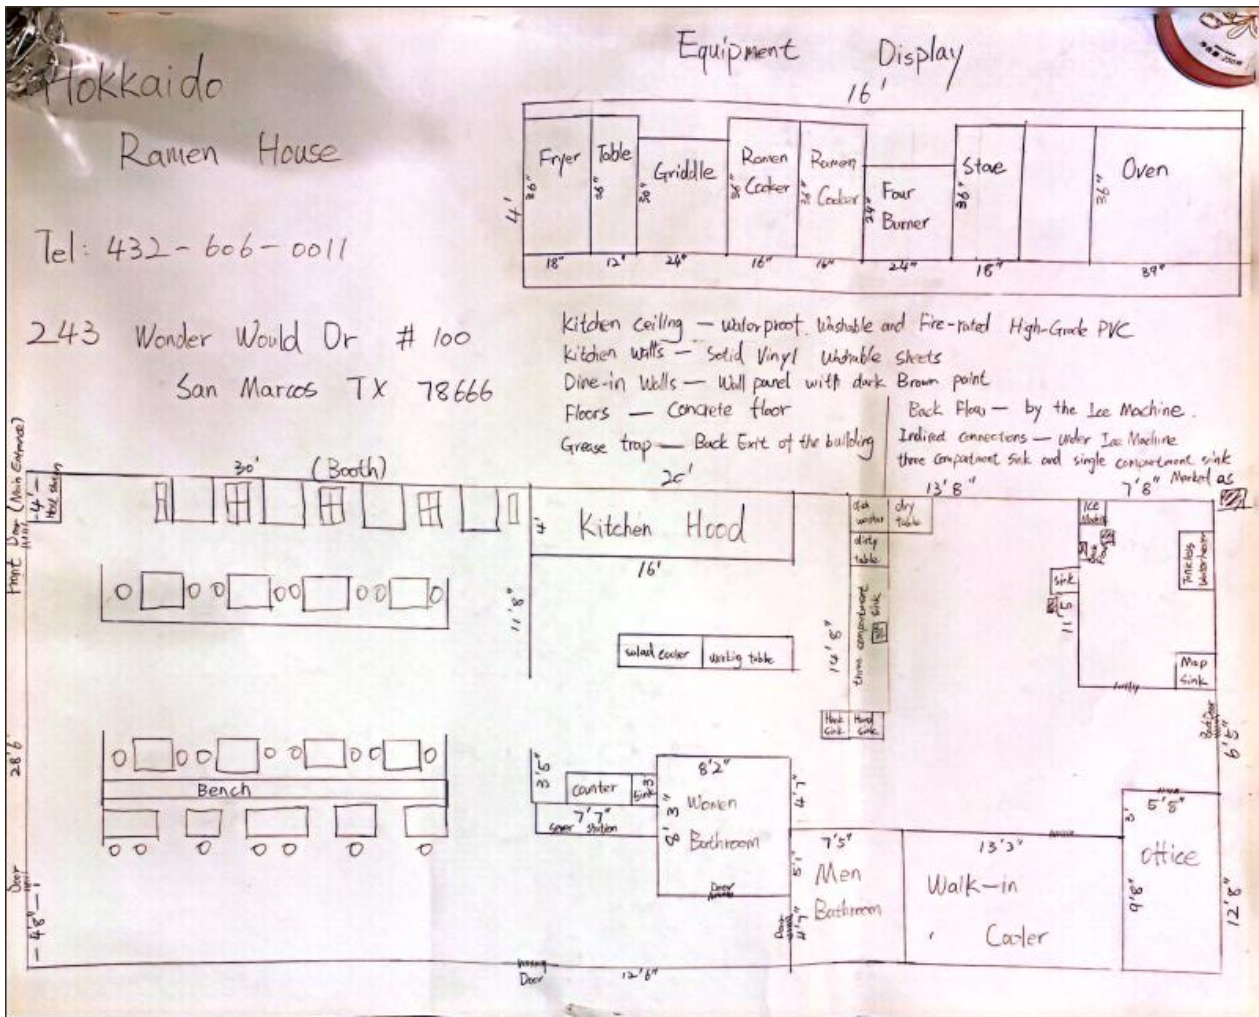 Hokkaido
Ramen House
Tel: 432-606-0011
243 Wonder Would Dr # 100
San Marcos TX 78666
Equipment Display
16'
4'
Fryer
36"
18"
Table
36"
12"
Griddle
30"
24"
Ramen
Cooker
36"
16"
Ramen
Cooker
36"
16"
Four
Burner
24"
24"
Stove
36"
18"
Oven
36"
39"
Kitchen ceiling — Waterproof. Washable and Fire-rated High-Grade PVC
Kitchen walls — Solid Vinyl Washable sheets
Dine-in Walls — Wall panel with dark Brown point
Floors — Concrete floor
Grease trap — Back Exit of the building
Back Flow — by the Ice Machine.
Indirect connections — under Ice Machine
three compartment sink and single compartment sink
Marked as
Front Door (Main Entrance)
4'
30'
(Booth)
20'
13'8"
7'8"
Kitchen Hood
4'
16'
11'8"
dry
table
dirty
table
Ice
sink
11'5"
Tankless
Waterheater
three compartment
sink
14'8"
salad cooler
working table
Mop
Sink
Back Door
6'5"
Hand
Sink
Hand
Sink
28'6"
Bench
3'5"
counter
Sink
7'7"
server station
8'2"
8'3"
Women
Bathroom
Door
4'7"
7'5"
5'1"
Men
Bathroom
Door
4'7"
13'3"
Walk-in
Cooler
3'
5'8"
office
9'8"
12'8"
Door
4'8"
Door
12'6"